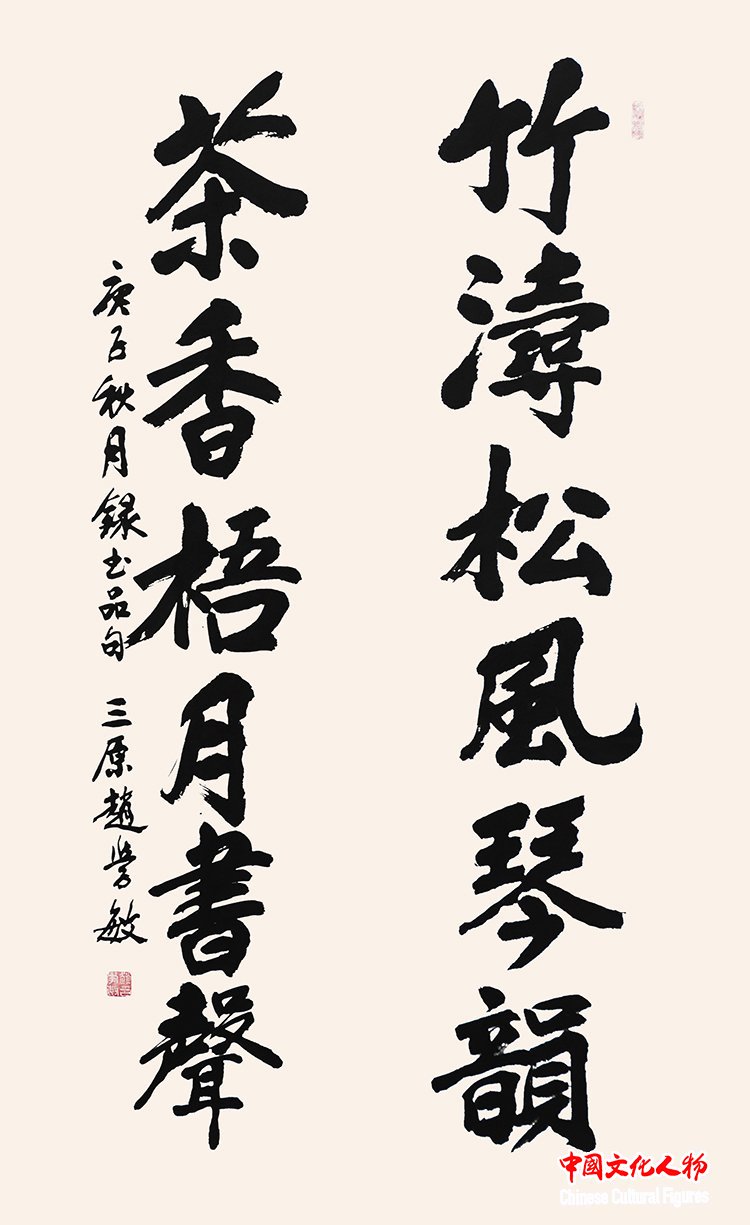 竹濤松風琴韻
茶香梧月書聲
庚子秋月錄书品句 三原趙學敏
中國文化人物
Chinese Cultural Figures